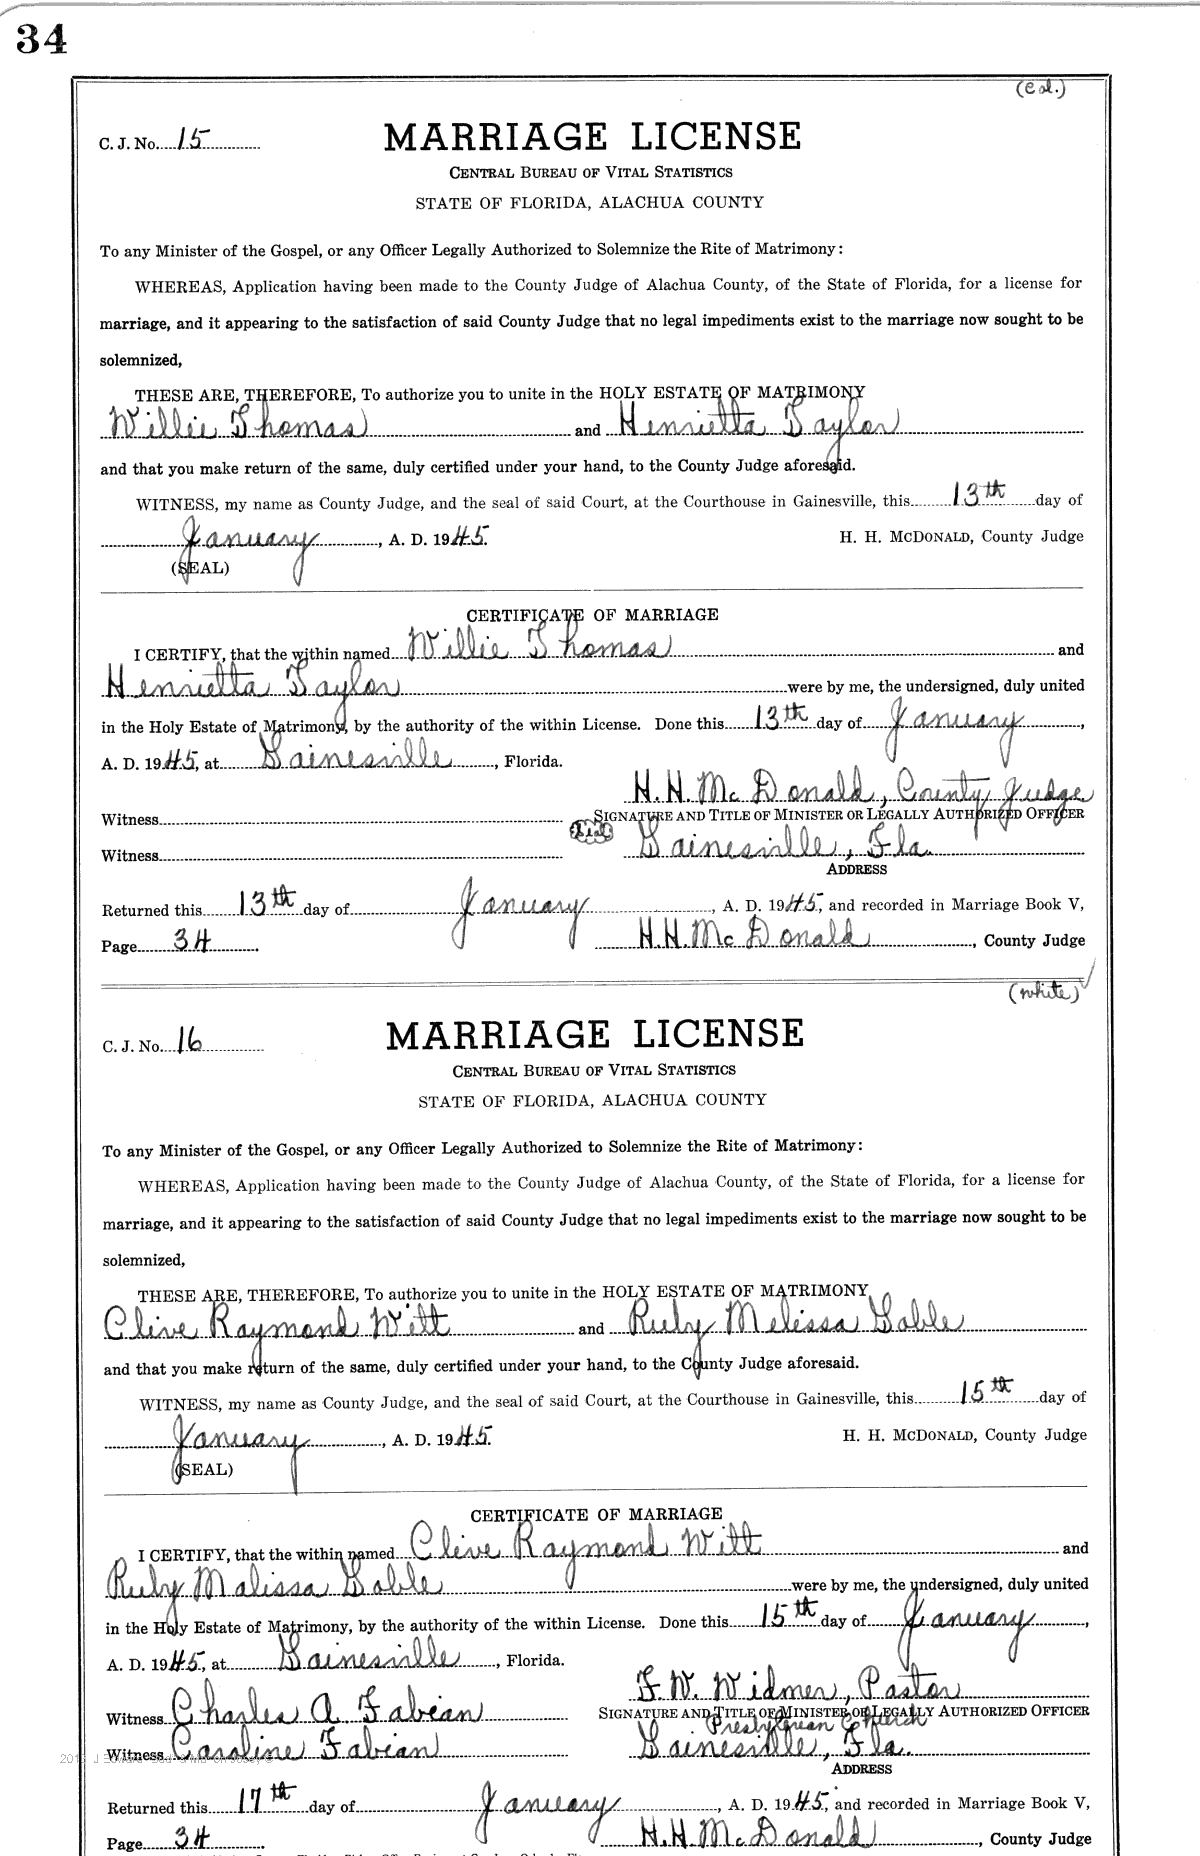 34
(Col.)
C. J. No. 15
MARRIAGE LICENSE
CENTRAL BUREAU OF VITAL STATISTICS
STATE OF FLORIDA, ALACHUA COUNTY
To any Minister of the Gospel, or any Officer Legally Authorized to Solemnize the Rite of Matrimony:
WHEREAS, Application having been made to the County Judge of Alachua County, of the State of Florida, for a license for
marriage, and it appearing to the satisfaction of said County Judge that no legal impediments exist to the marriage now sought to be
solemnized,
THESE ARE, THEREFORE, To authorize you to unite in the HOLY ESTATE OF MATRIMONY
Willie Thomas and Henrietta Taylor
and that you make return of the same, duly certified under your hand, to the County Judge aforesaid.
WITNESS, my name as County Judge, and the seal of said Court, at the Courthouse in Gainesville, this 13th day of
January, A. D. 1945. H. H. MCDONALD, County Judge
(SEAL)
CERTIFICATE OF MARRIAGE
I CERTIFY, that the within named Willie Thomas and
Henrietta Taylor were by me, the undersigned, duly united
in the Holy Estate of Matrimony, by the authority of the within License. Done this 13th day of January,
A. D. 1945, at Gainesville, Florida.
H. H. McDonald, County Judge
Witness SIGNATURE AND TITLE OF MINISTER OR LEGALLY AUTHORIZED OFFICER
(Seal) Gainesville, Fla.
Witness
ADDRESS
Returned this 13th day of January, A. D. 1945, and recorded in Marriage Book V,
Page 34 H. H. McDonald, County Judge
(white)
C. J. No. 16
MARRIAGE LICENSE
CENTRAL BUREAU OF VITAL STATISTICS
STATE OF FLORIDA, ALACHUA COUNTY
To any Minister of the Gospel, or any Officer Legally Authorized to Solemnize the Rite of Matrimony:
WHEREAS, Application having been made to the County Judge of Alachua County, of the State of Florida, for a license for
marriage, and it appearing to the satisfaction of said County Judge that no legal impediments exist to the marriage now sought to be
solemnized,
THESE ARE, THEREFORE, To authorize you to unite in the HOLY ESTATE OF MATRIMONY
Clive Raymond Witt and Ruby Melissa Goble
and that you make return of the same, duly certified under your hand, to the County Judge aforesaid.
WITNESS, my name as County Judge, and the seal of said Court, at the Courthouse in Gainesville, this 15th day of
January, A. D. 1945. H. H. MCDONALD, County Judge
(SEAL)
CERTIFICATE OF MARRIAGE
I CERTIFY, that the within named Clive Raymond Witt and
Ruby Malissa Goble were by me, the undersigned, duly united
in the Holy Estate of Matrimony, by the authority of the within License. Done this 15th day of January,
A. D. 1945, at Gainesville, Florida.
F. W. Widmer, Pastor
Witness Charles A Fabian SIGNATURE AND TITLE OF MINISTER OR LEGALLY AUTHORIZED OFFICER
Presbyterian Church
Witness Caroline Fabian Gainesville, Fla.
ADDRESS
Returned this 17th day of January, A. D. 1945, and recorded in Marriage Book V,
Page 34 H. H. McDonald, County Judge